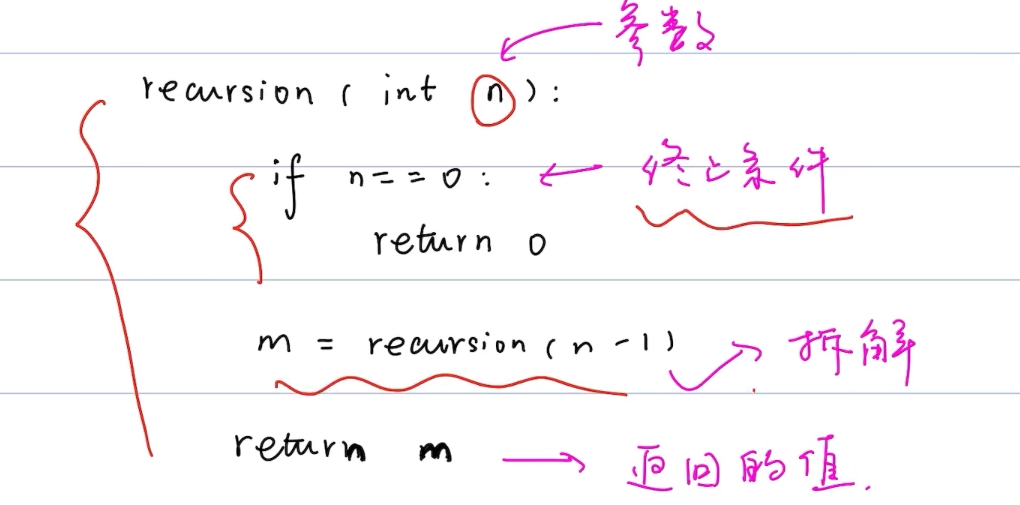 参数
recursion ( int n ) :
if n = = 0 : 终止条件
return 0
m = recursion ( n - 1 ) 拆解
return m 返回的值.